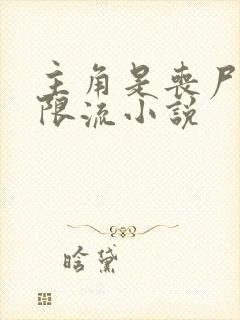 主角是丧尸
限流小说
晗黛